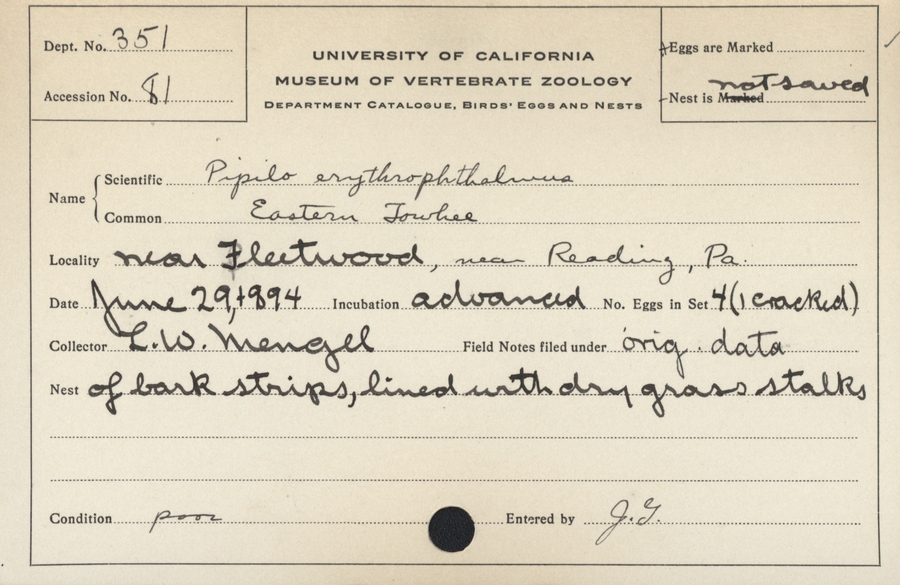 Dept. No. 351
Accession No. 81
UNIVERSITY OF CALIFORNIA
MUSEUM OF VERTEBRATE ZOOLOGY
DEPARTMENT CATALOGUE, BIRDS' EGGS AND NESTS
Eggs are Marked
Nest is Marked not saved
Name
Scientific Pipilo erythrophthalmus
Common Eastern Towhee
Locality near Fleetwood, near Reading, Pa.
Date June 29, 1894 Incubation advanced No. Eggs in Set 4 (1 cracked)
Collector L.W. Mengel Field Notes filed under orig. data
Nest of bark strips, lined with dry grass stalks
Condition poor Entered by J.G.